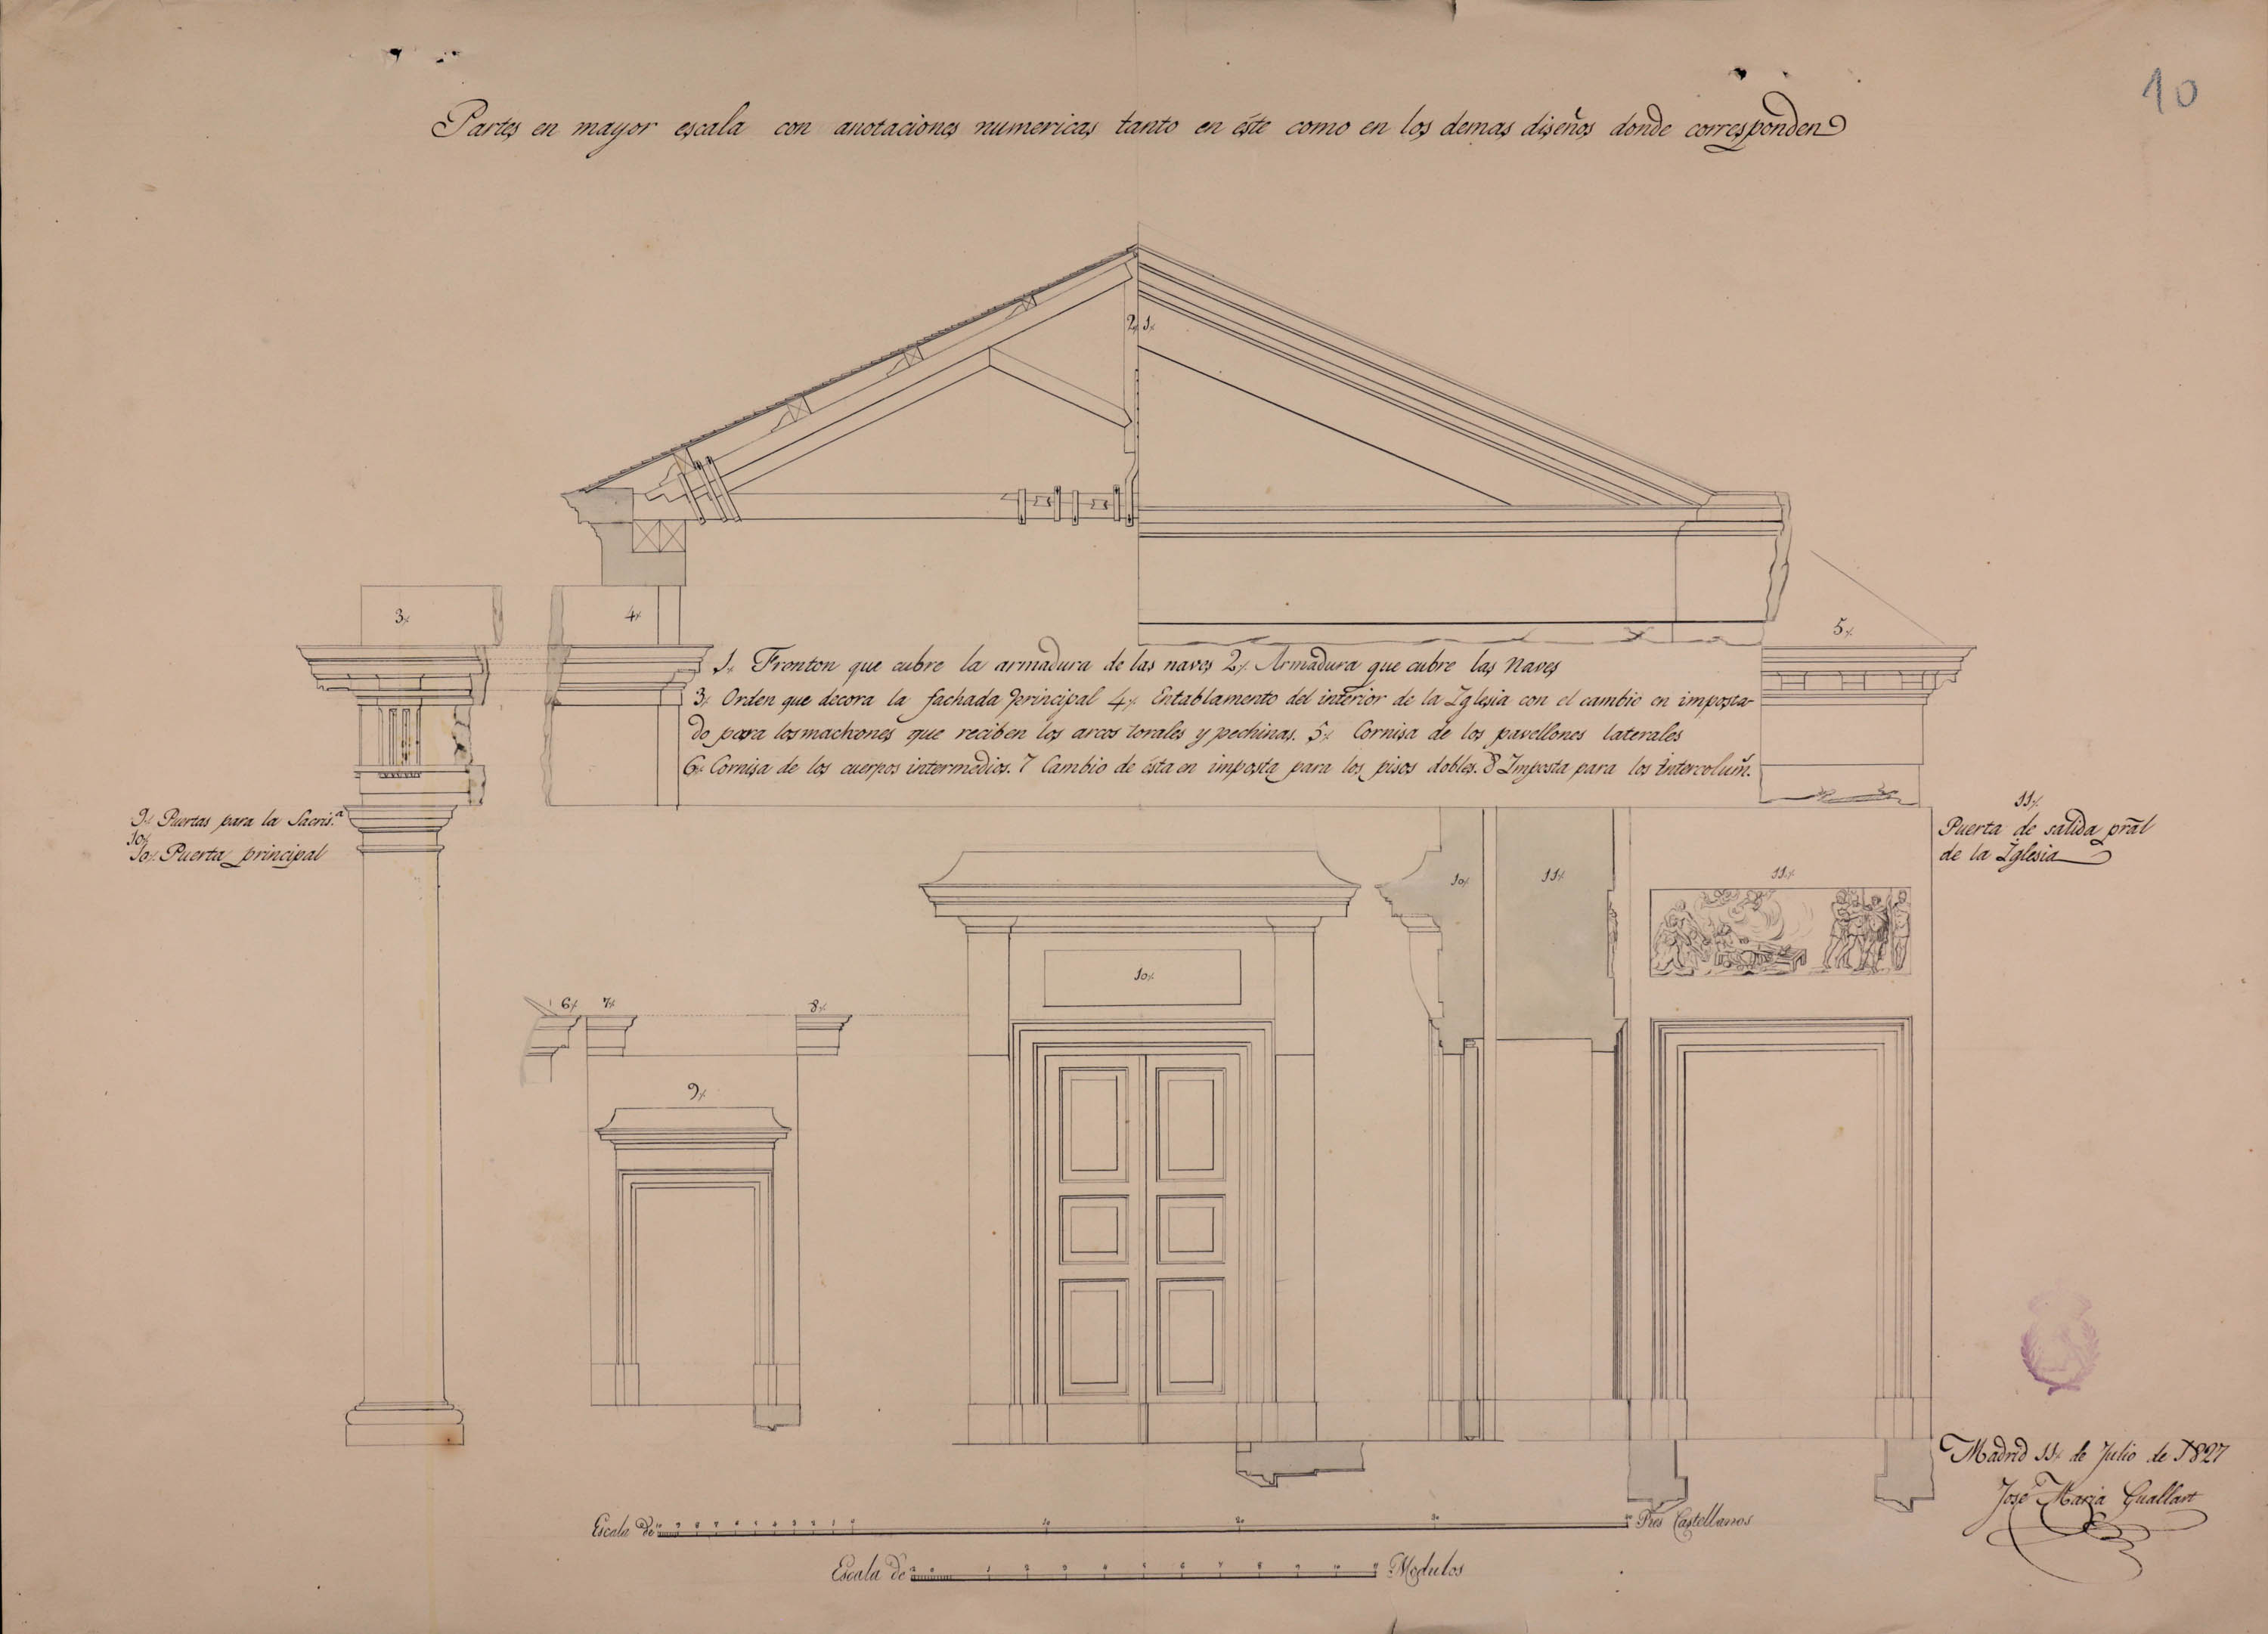 10
Partes en mayor escala con anotaciones numericas tanto en éste como en los demas diseños donde corresponden
2 1
3
4
5
1 Fronton que cubre la armadura de las naves 2 Armadura que cubre las Naves
3 Orden que decora la fachada principal 4 Entablamento del interior de la Iglesia con el cambio en imposta-
do para los machones que reciben los arcos torales y pechinas. 5 Cornisa de los pavellones laterales
6 Cornisa de los cuerpos intermedios. 7 Cambio de ésta en imposta para los pisos dobles. 8 Imposta para los intercolum̃.
9 Puertas para la Sacris.a
10
10 Puerta principal
11
Puerta de salida prãl
de la Iglesia
10
11
11
10
6 7
8
9
Madrid 11 de Julio de 1827
José Maria Guallart
Escala de 10 9 8 7 6 5 4 3 2 1 0 10 20 30 40 Pies Castellanos
Escala de 12 6 1 2 3 4 5 6 7 8 9 10 11 Modulos